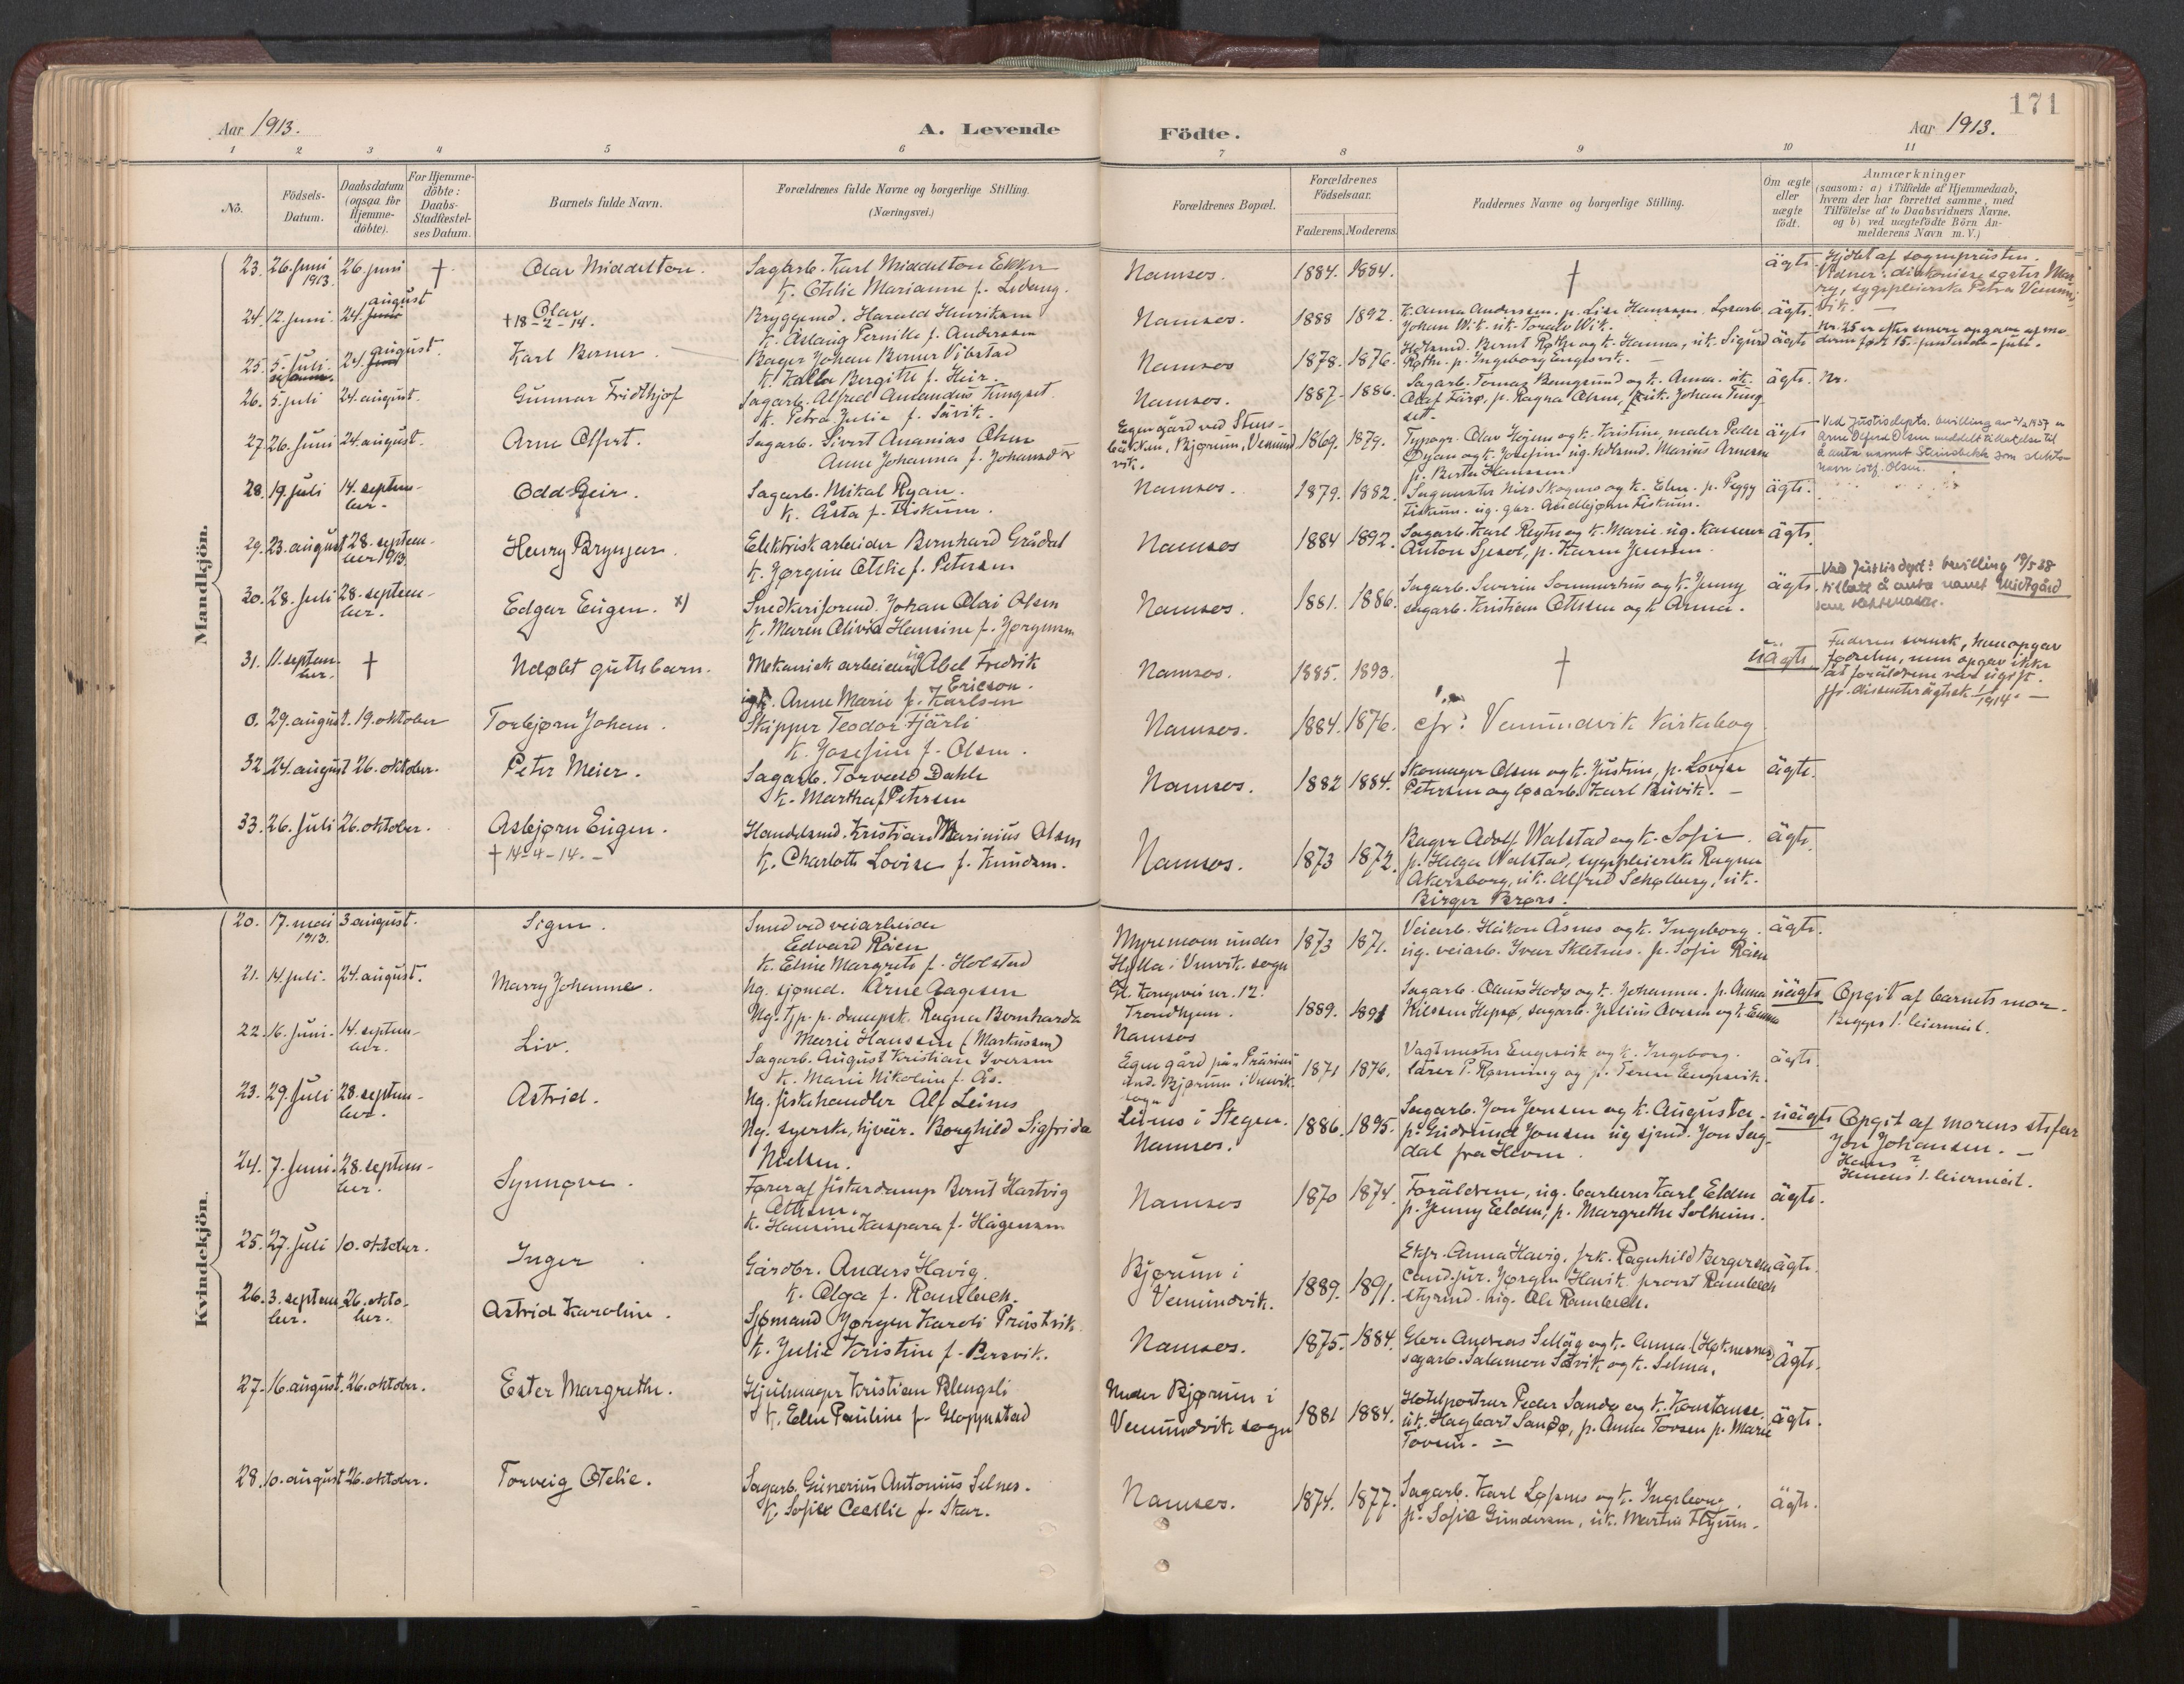 171
Aar 1913.
A. Levende Födte.
Aar 1913.
1 2 3 4 5 6 7 8 9 10 11
Nō.
Födsels-Datum.
Daabsdatum (ogsaa for Hjemme-döbte).
For Hjemme-döbte: Daabs-Stadfæstel-ses Datum.
Barnets fulde Navn.
Forældrenes fulde Navne og borgerlige Stilling.
(Næringsvei.)
Forældrenes Bopæl.
Forældrenes Födselsaar.
Faderens. Moderens.
Faddernes Navne og borgerlige Stilling.
Om ægte eller uægte födt.
Anmærkninger
(saasom: a) i Tilfælde af Hjemmedaab,
hvem der har forrettet samme, med
Tilföielse af to Daabsvidners Navne,
og b) ved uægtefödte Börn An-
melderens Navn m. V.)
Mandkjön.
23. 26. juni 1913. 26. juni † Olav Middelton.
Sagarb. Karl Middelton Ekker
k. Otelie Marianne f. Lideng.
Namsos. 1884. 1884. † ägte.
Hjdbt af sogneprästen.
Vidner: diakonisse søster Mar
ry, sygepleierske Petra Vemun
vik. —
24. 12. juni. 24. juni august Olav
† 18-2-14.
Bryggemd. Harald Henriksen
k. Aslaug Pernille f. Andersen
Namsos. 1888 1892.
k. Anna Andersen. p. Lise Hanssen. Løsarb.
Johan Wik. uk. Toralv Wik.
ägte.
Nr. 25 er efter senere opgave af mo-
deren født 15. juli.
25. 5. juli. 24. juni august. Karl Berner.
Bager Johan Berner Vibstad
k. Kalla Bergithe f. Heir.
Namsos 1878. 1876.
Handelsmd. Bernt Røthe og k. Hanna, uk. Sigurd
Røthe. p. Ingeborg
ägte
26. 5. juli 24. august. Gunnar Fridthjof
Sagarb. Alfred Amandus Tungset.
k. Petra Julie f. Savik.
Namsos. 1887. 1886.
Sagarb. Tomas Bangsund og k. Anna. uk.
Olaf Färø, p. Ragna Olsen, uk. Johan Tung
set.
ägte. Nr.
27. 26. juni 24. august. Arne Olfert.
Sagarb. Sivert Ananias Olsen
Anne Johanna f. Johansdr
Egen gård ved Stens-
bäkken, Bjørum, Vemund
vik.
1869. 1879.
Typogr. Olav Hojem og k. Kristine, maler Peder
Øyan og k. Josefine ug. hdlsmd. Marius Arnesen
p. Berta Hanssen.
ägte
Ved Justisdepts. bevilling av 1957 er
Arne Olferd Olsen meddelt tillatelse til
å anta navnet Steinsbekk som slekts-
navn istf. Olsen.
28. 19. juli 14. septem-
ber. Odd Geir.
Sagarb. Mikal Ryan.
k. Åsta f. Fiskum.
Namsos. 1879. 1882.
Sagmester Nils Skogmo og k. Elen. p. Peggy
Fiskum. ug. gbr. Audbjørn Fiskum.
ägte.
29. 23. august 28. septem-
ber 1913. Henry Brynjar.
Elektrisk arbeider Bernhard Grådal
k. Jørgine Otelie f. Petersen
Namsos 1884 1892.
Sagarb. Karl Røyter og k. Marie. ug.
Anton Sjesol, p. Karen Jenssen.
ägte.
30. 28. juli 28. septem-
ber. Edgar Eugen. x)
Snedkerformd. Johan Olai Olsen
k. Maren Olivia Hansine f. Jørgensen
Namsos. 1881. 1886.
Sagarb. Severin Sommerhus og k. Jenny
sagarb. Kristian Ottesen og k. Anna.
ägte.
Ved Justisdept: bevilling 19/5 28
tillatt å anta navnet Midtgård
som slektsnavn.
31. 11. septem-
ber. † Udøbt guttebarn.
Mekanisk arbeider ug Abel Fredrik
Ericson.
Anne Marie f. Karlsen
Namsos. 1885. 1893. † uägte
Faderen svensk, hun opgav
fødselen, men opgav ikke
at foräldrene var ugift.
jfr. dissenterägtsk. 1/1914. —
0. 29. august. 19. oktober Torbjørn Johan.
Skipper Teodor Fjärli
k. Josefine f. Olsen.
Namsos. 1884. 1876. cfr: Vemundvik kirkebog
32. 24. august 26. oktober. Peter Meier.
Sagarb. Torvald Dahle
k. Martha f. Petersen
Namsos. 1882 1884.
Skomager Olsen og k. Justine, p. Lovise
Petersen og løsarb. Karl Buvik. —
ägte.
33. 26. juli 26. oktober. Asbjørn Eugen.
† 14-4-14. —
Handelsmd. Kristian Marinius Olsen
k. Charlotte Lovise f. Knudsen.
Namsos. 1873 1872.
Bager Adolf Walstad og k. Sofie
p. Helga Walstad, sygepleierske Ragna
Akersborg, uk. Alfred Schølberg, uk.
Birger Brørs.
ägte.
Kvindekjön.
20. 17. mai 1913. 3 august. Signe.
Smed ved veiarbeider
Edvard Råen
k. Eline Margrete f. Holstad
Myremoen under
Hylla i Vemvik. sogn
1873 1871.
Veiarb. Håkon Åsnes og k. Ingeborg.
ug. veiarb. Ivar Skletnes. p. Sofie Råen
ägte.
21. 14. juli. 24. august. Marry Johanne.
Ug. sjømd. Arne Aagesen
Ug. tjp. p. dampsk. Ragna Bernharda
Marie Hanssen (Markussen)
Gl. Kongevei nr. 12.
Trondhjem.
Namsos
1889. 1891
Sagarb. Olaus Hodø og k. Johanna. p. Anna
Nilssen Hepsø, sagarb. Julius Aresen og k. Emma
uägte
Opgit af barnets mor.
Begges 1. leiermål.
22. 16. juni. 14. septem-
ber. Liv.
Sagarb. August Kristian Iversen
k. Marie Nikoline f. Ås.
Egen gård på "Prärien"
und. Bjørum i Vemvik.
sogn
1871 1876.
Vagtmester Engesvik og k. Ingeborg.
lærer P. Rønning og p. Terese Engesvik.
ägte.
23. 29. juli 28. septem-
ber. Astrid.
Ug. fiskehandler Alf Leines
Ug. syerske, hjvär. Borghild Sigfrida
Nielsen.
Leines i Stegen.
Namsos.
1886. 1895.
Sagarb. Jon Jensen og k. Augusta.
p. Gudrund Jonsen ug sjmd. Jon Sag-
dal fra Høven.
uägte
Opgit af morens stefar
Jon Johansen. —
Hans ?
Hendes 1. leiermål.
24. 7. juni. 28. septem-
ber. Synnøve.
Fører af fisterdamp Bernt Hartvig
Ottesen.
k. Hansine Kaspara f. Hågensen
Namsos 1870 1874.
Foräldrene, ug. barberer Karl Elden
p. Jenny Elden, p. Margrethe Solheim.
ägte.
25. 27. juli 10. oktober. Inger
Gårdbr. Anders Havig.
k. Olga f. Rambech.
Bjørum i
Vemundvik.
1889. 1891.
Ekfr. Anna Havig. frk. Ragnhild Bergersen
cand. jur. Jørgen Havik. provst Rambech
styrmd. ug. Ole Rambech.
ägte.
26. 3. septem-
ber. 26. okto-
ber. Astrid Karoline.
Sjømand Jørgen Karoli Prästvik.
k. Julie Kristine f. Persvik.
Namsos. 1875. 1884.
Gbr. Andreas Selläg og k. Anna (Høknesnes)
sagarb. Salamon Såvik og k. Selma.
ägte.
27. 16. august. 26. oktober. Ester Margrethe.
Hjulmager Kristian Blengsli
k. Elen Pauline f. Gloppustad
Under Bjørum i
Vemundvik sogn
1881 1884.
Hotelportner Peder Sandø og k. Konstanse.
uk. Hagbart Sandø, p. Anna Tovsen p. Marie
Tovsen. —
ägte.
28. 10. august 26. oktober. Torveig Otelie.
Sagarb. Gunerius Antonius Selnes.
k. Sofie Cecilie f. Skar.
Namsos. 1874. 1877.
Sagarb. Karl Løfsnes og k. Ingeborg.
p. Sofie Gundersen, uk. Martin Flyum.
ägte.